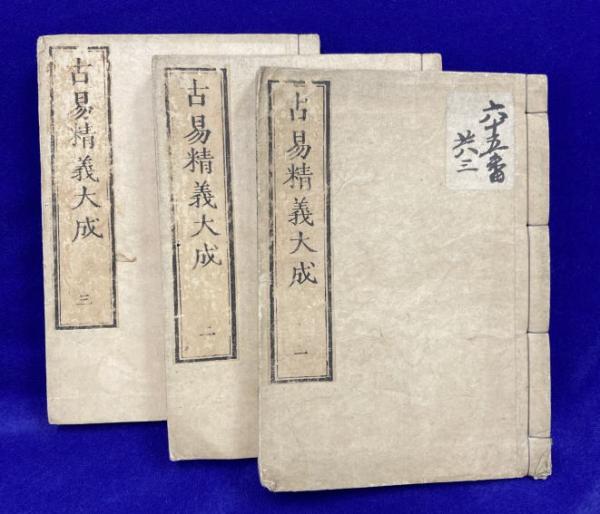 古易精義大成 三
古易精義大成 二
古易精義大成 一
六十五番
共三